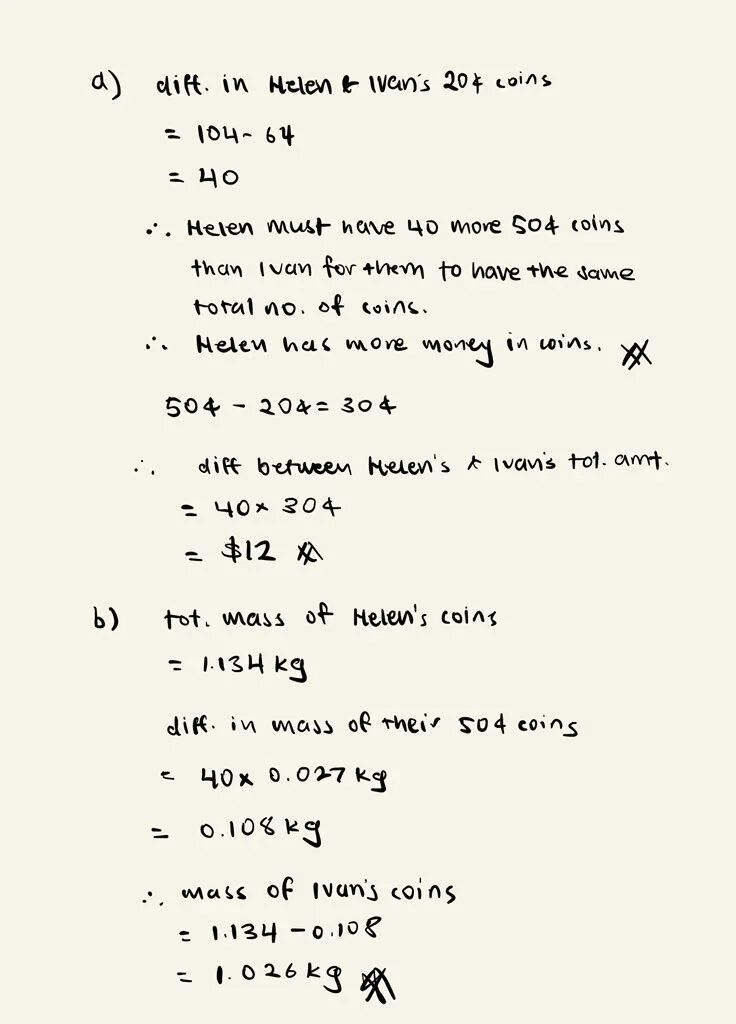 a) diff. in Helen & Ivan's 20¢ coins
= 104 - 64
= 40
∴ Helen must have 40 more 50¢ coins
than Ivan for them to have the same
total no. of coins.
∴ Helen has more money in coins.
50¢ - 20¢ = 30¢
∴ diff between Helen's & Ivan's tot. amt.
= 40 × 30¢
= $12
b) tot. mass of Helen's coins
= 1.134 kg
diff. in mass of their 50¢ coins
= 40 × 0.027 kg
= 0.108 kg
∴ mass of Ivan's coins
= 1.134 - 0.108
= 1.026 kg